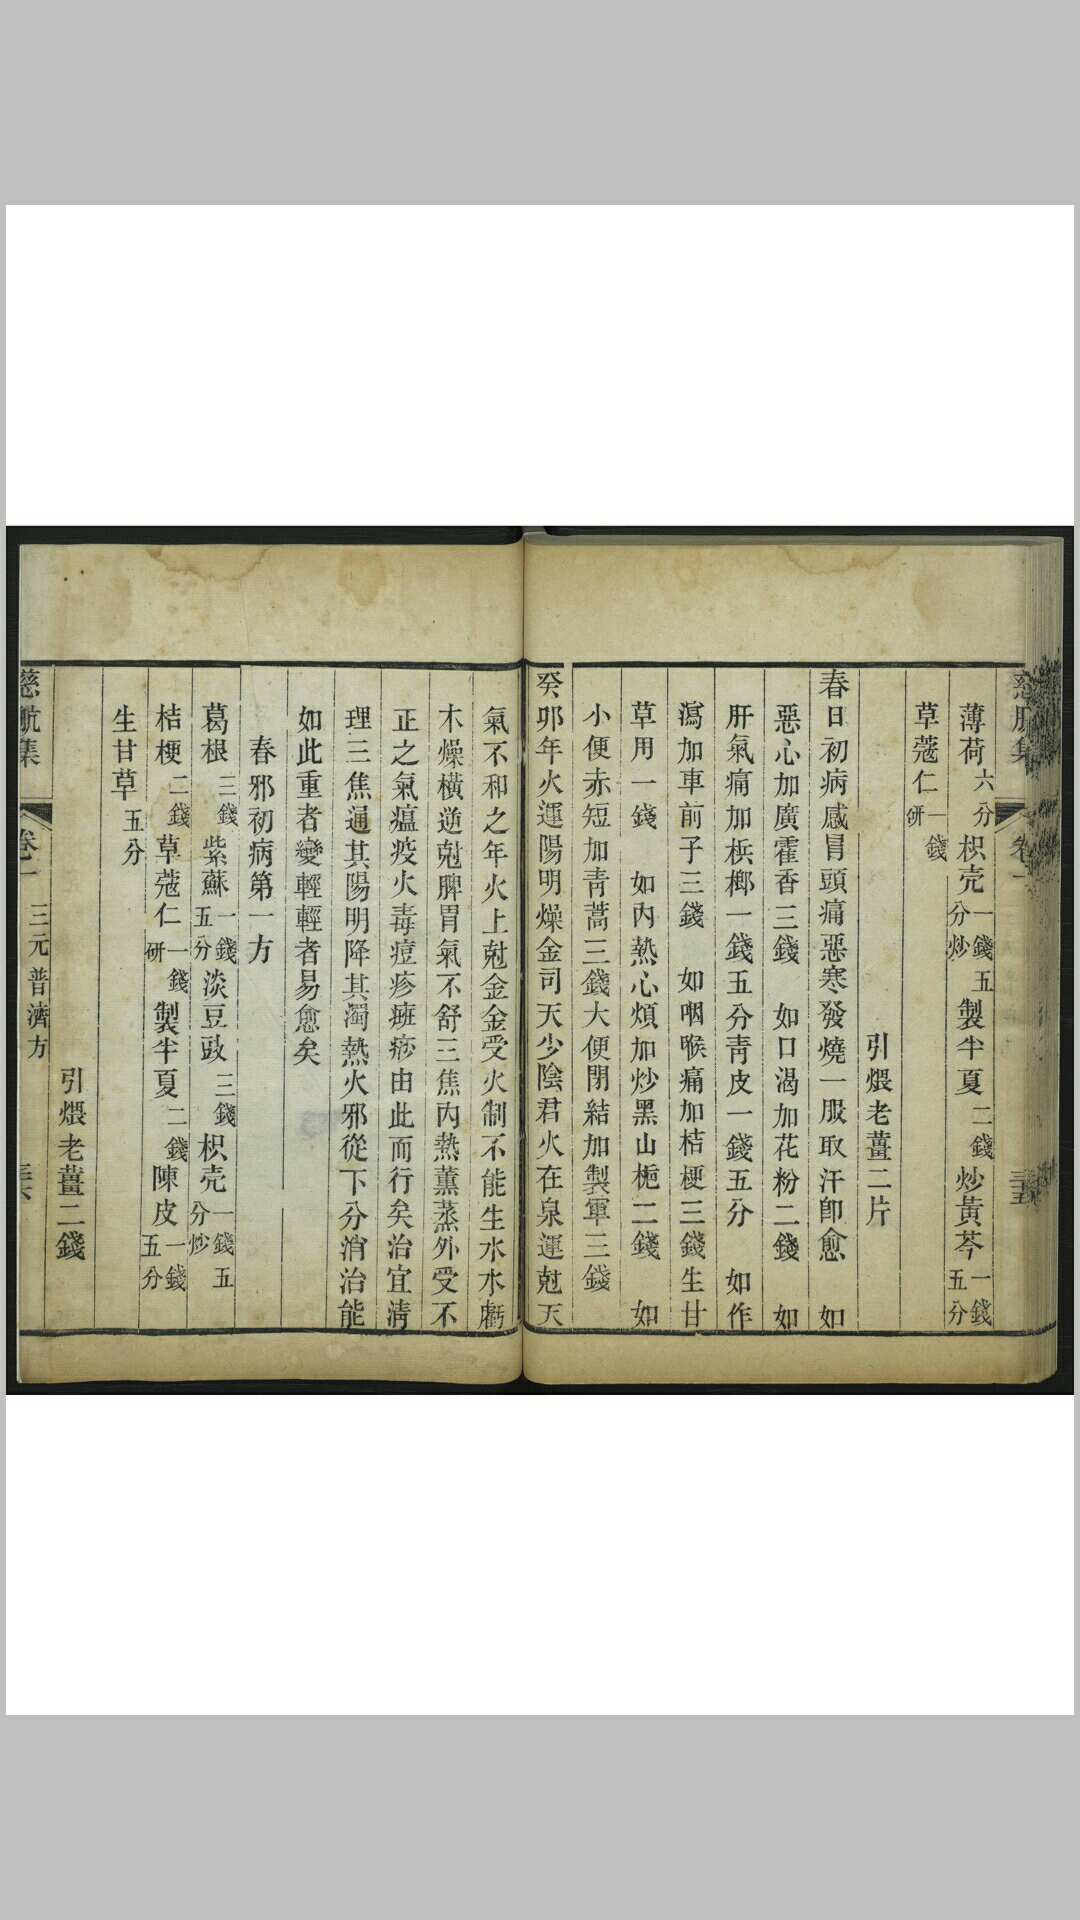 慈航集 卷一 三五
薄荷六分 枳壳一錢五分炒 製半夏二錢 炒黃芩一錢五分
草蔻仁一錢研
引煨老薑二片
春日初病感冒頭痛惡寒發燒一服取汗卽愈 如
惡心加廣霍香三錢 如口渴加花粉二錢 如
肝氣痛加梹榔一錢五分靑皮一錢五分 如作
瀉加車前子三錢 如咽喉痛加桔梗三錢生甘
草用一錢 如內熱心煩加炒黑山梔二錢 如
小便赤短加靑蒿三錢大便閉結加製軍三錢
癸卯年火運陽明燥金司天少陰君火在泉運尅天
氣不和之年火上尅金金受火制不能生水水虧
木燥橫逆尅脾胃氣不舒三焦內熱薰蒸外受不
正之氣瘟疫火毒痘疹斑痧由此而行矣治宜淸
理三焦通其陽明降其濁熱火邪從下分消治能
如此重者變輕輕者易愈矣
春邪初病第一方
葛根三錢 紫蘇一錢五分 淡豆豉三錢 枳壳一錢五分炒
桔梗二錢 草蔻仁一錢研 製半夏二錢 陳皮一錢五分
生甘草五分
引煨老薑二錢
慈航集 卷一 三元普濟方 三六